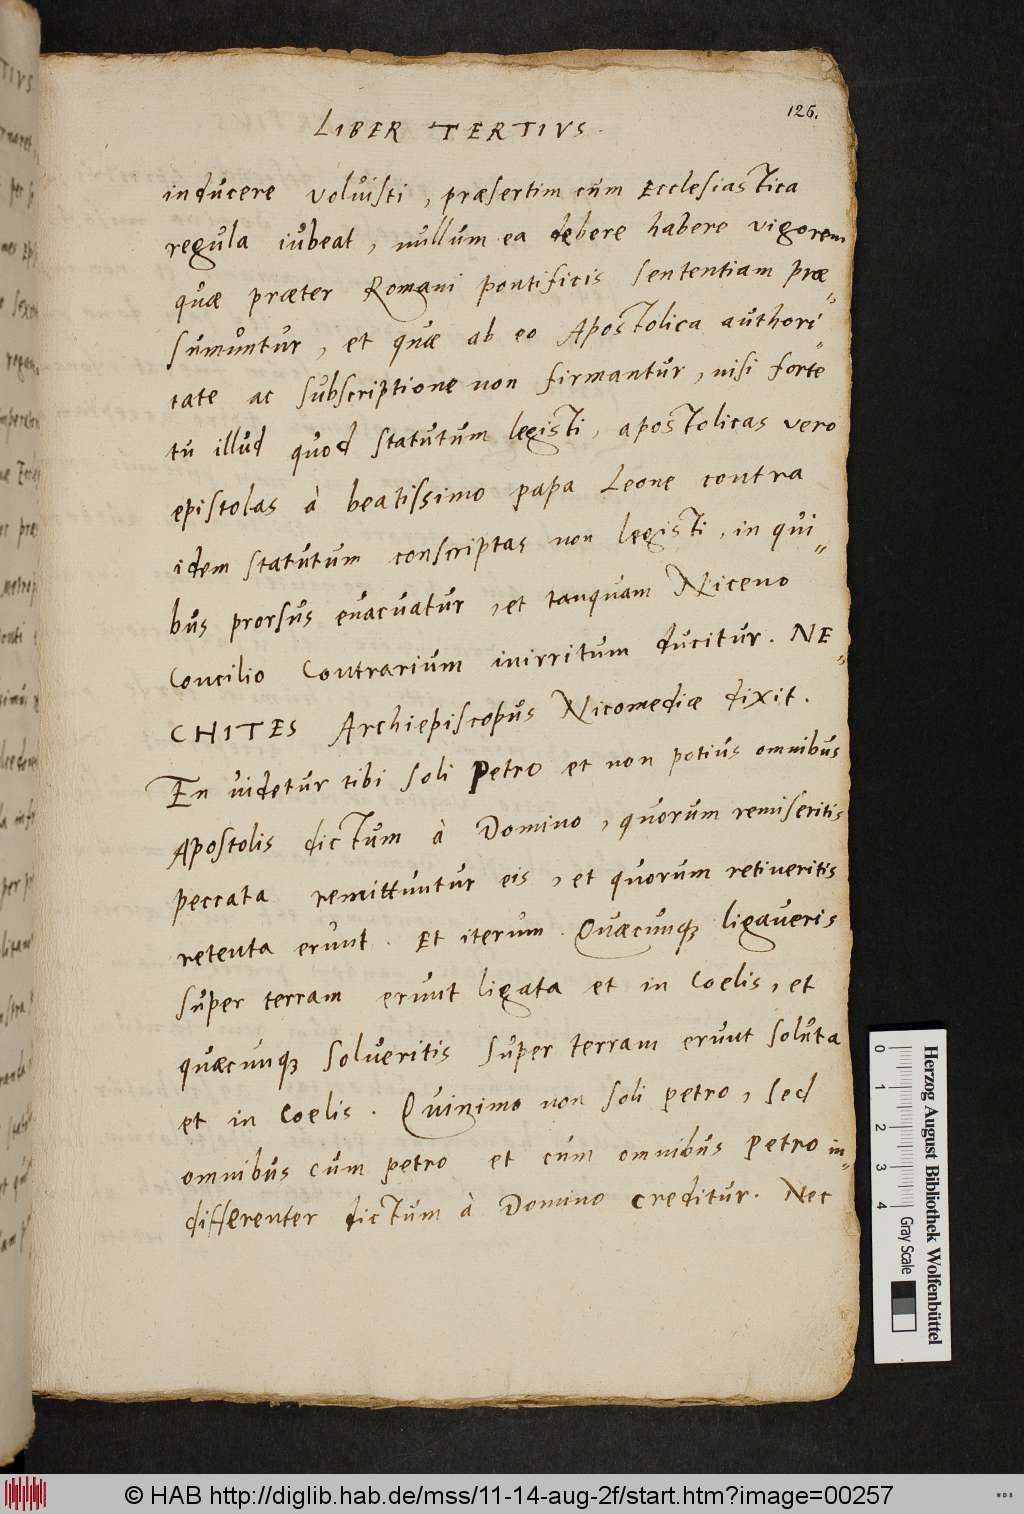 126.
LIBER TERTIVS.
inducere voluisti, præsertim cum Ecclesiastica
regula iubeat, nullum ea debere habere vigorem
quæ præter Romani pontificis sententiam præ=
sumuntur, et quæ ab eo Apostolica authori=
tate ac subscriptione non firmantur, nisi forte
tu illud quod statutum legisti, apostolicas vero
epistolas à beatissimo papa Leone contra
idem statutum conscriptas non legisti, in qui=
bus prorsus euacuatur, et tanquam Niceno
Concilio Contrarium inirritum ducitur. NE=
CHITES Archiepiscopus Nicomediæ dixit.
En uidetur tibi soli Petro et non potius omnibus
Apostolis dictum à Domino, quorum remiseritis
peccata remittuntur eis, et quorum retineritis
retenta erunt. Et iterum. Quæcunqꝫ ligaueris
super terram erunt ligata et in Coelis, et
quæcunqꝫ solueritis super terram erunt soluta
et in Coelis. Quinimo non soli petro, sed
omnibus cum petro et cum omnibus Petro in=
differenter dictum à Domino creditur. Nec
Herzog August Bibliothek Wolfenbüttel
0 1 2 3 4 Gray Scale
© HAB http://diglib.hab.de/mss/11-14-aug-2f/start.htm?image=00257